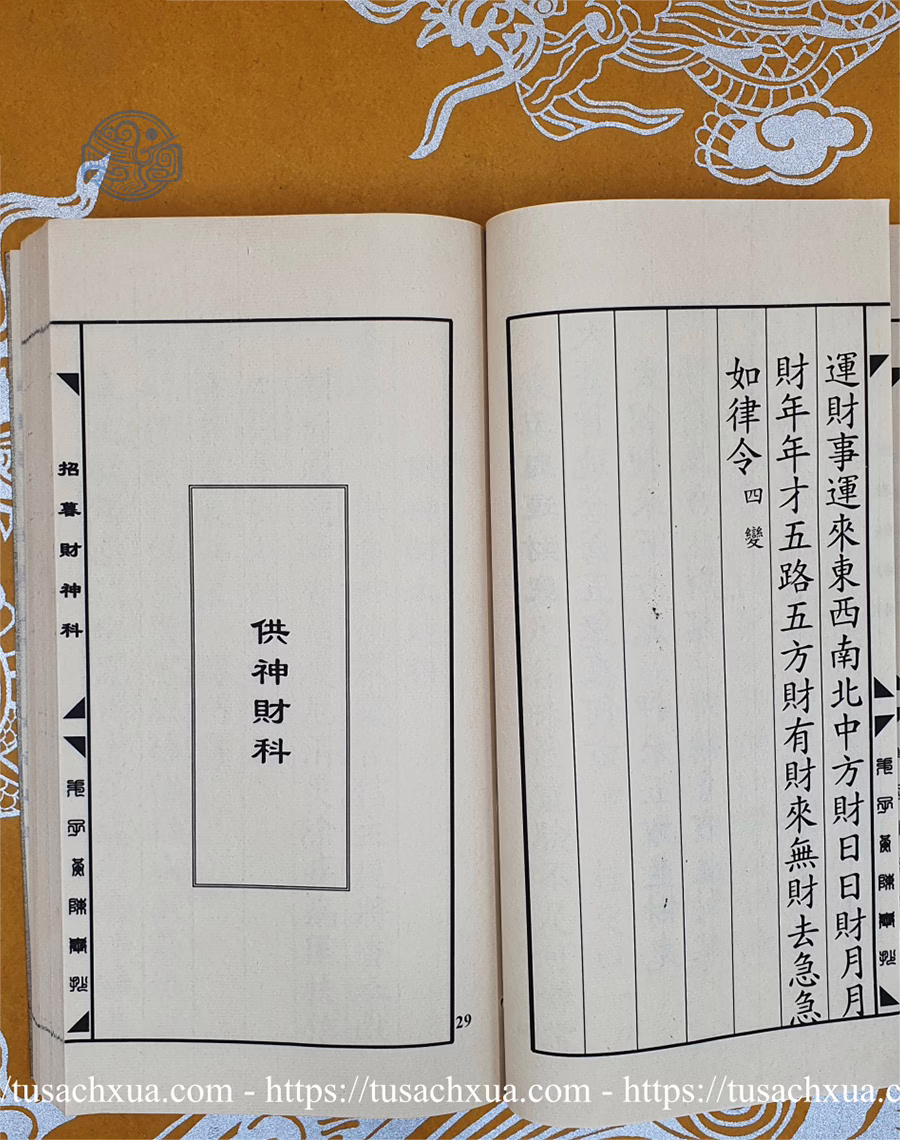 運財事運來東西南北中方財日日財月月
財年年才五路五方財有財來無財去急急
如律令 四變
供神財科
招暮財神科
29
/tusachxua.com - https://tusachxua.com - https://tusachxua.c